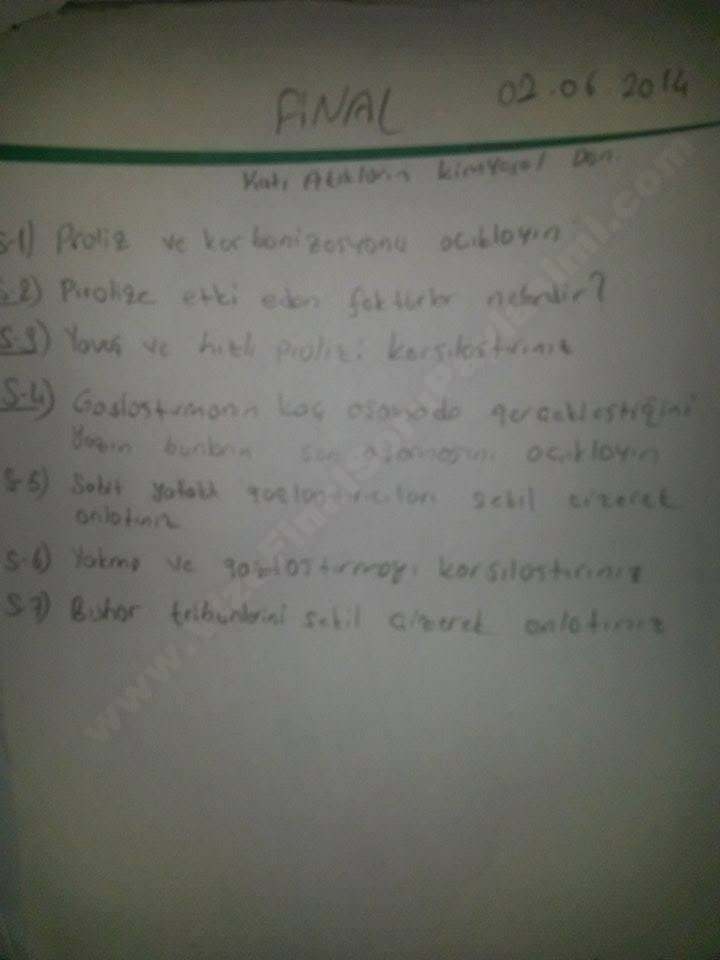 FİNAL 02.06.2014
Katı Atıkların kimyasal Dön.
S-1) Proliz ve karbonizasyonu açıklayın
S-2) Pirolize etki eden faktörler nelerdir?
S-3) Yavaş ve hızlı prolizi karşılaştırınız
S-4) Gazlaştırmanın kaç aşamada gerçekleştiğini
Yazın bunların son aşamasını açıklayın
S-5) Sabit yataklı gazlaştırıcıları şekil çizerek
anlatınız
S-6) Yakma ve gazlaştırmayı karşılaştırınız
S-7) Buhar tribünlerini şekil çizerek anlatınız